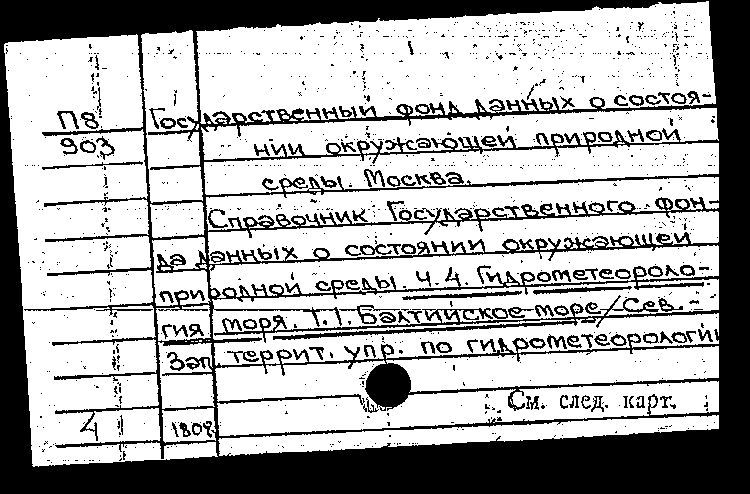 П8 Государственный фонд данных о состоя-
903 нии окружающей природной
среды. Москва.
Справочник Государственного фон-
да данных о состоянии окружающей
природной среды. Ч.4. Гидрометеороло-
гия моря. Т.1. Балтийское море/Сев.-
Зап. террит. упр. по гидрометеорологии
См. след. карт.
4 180